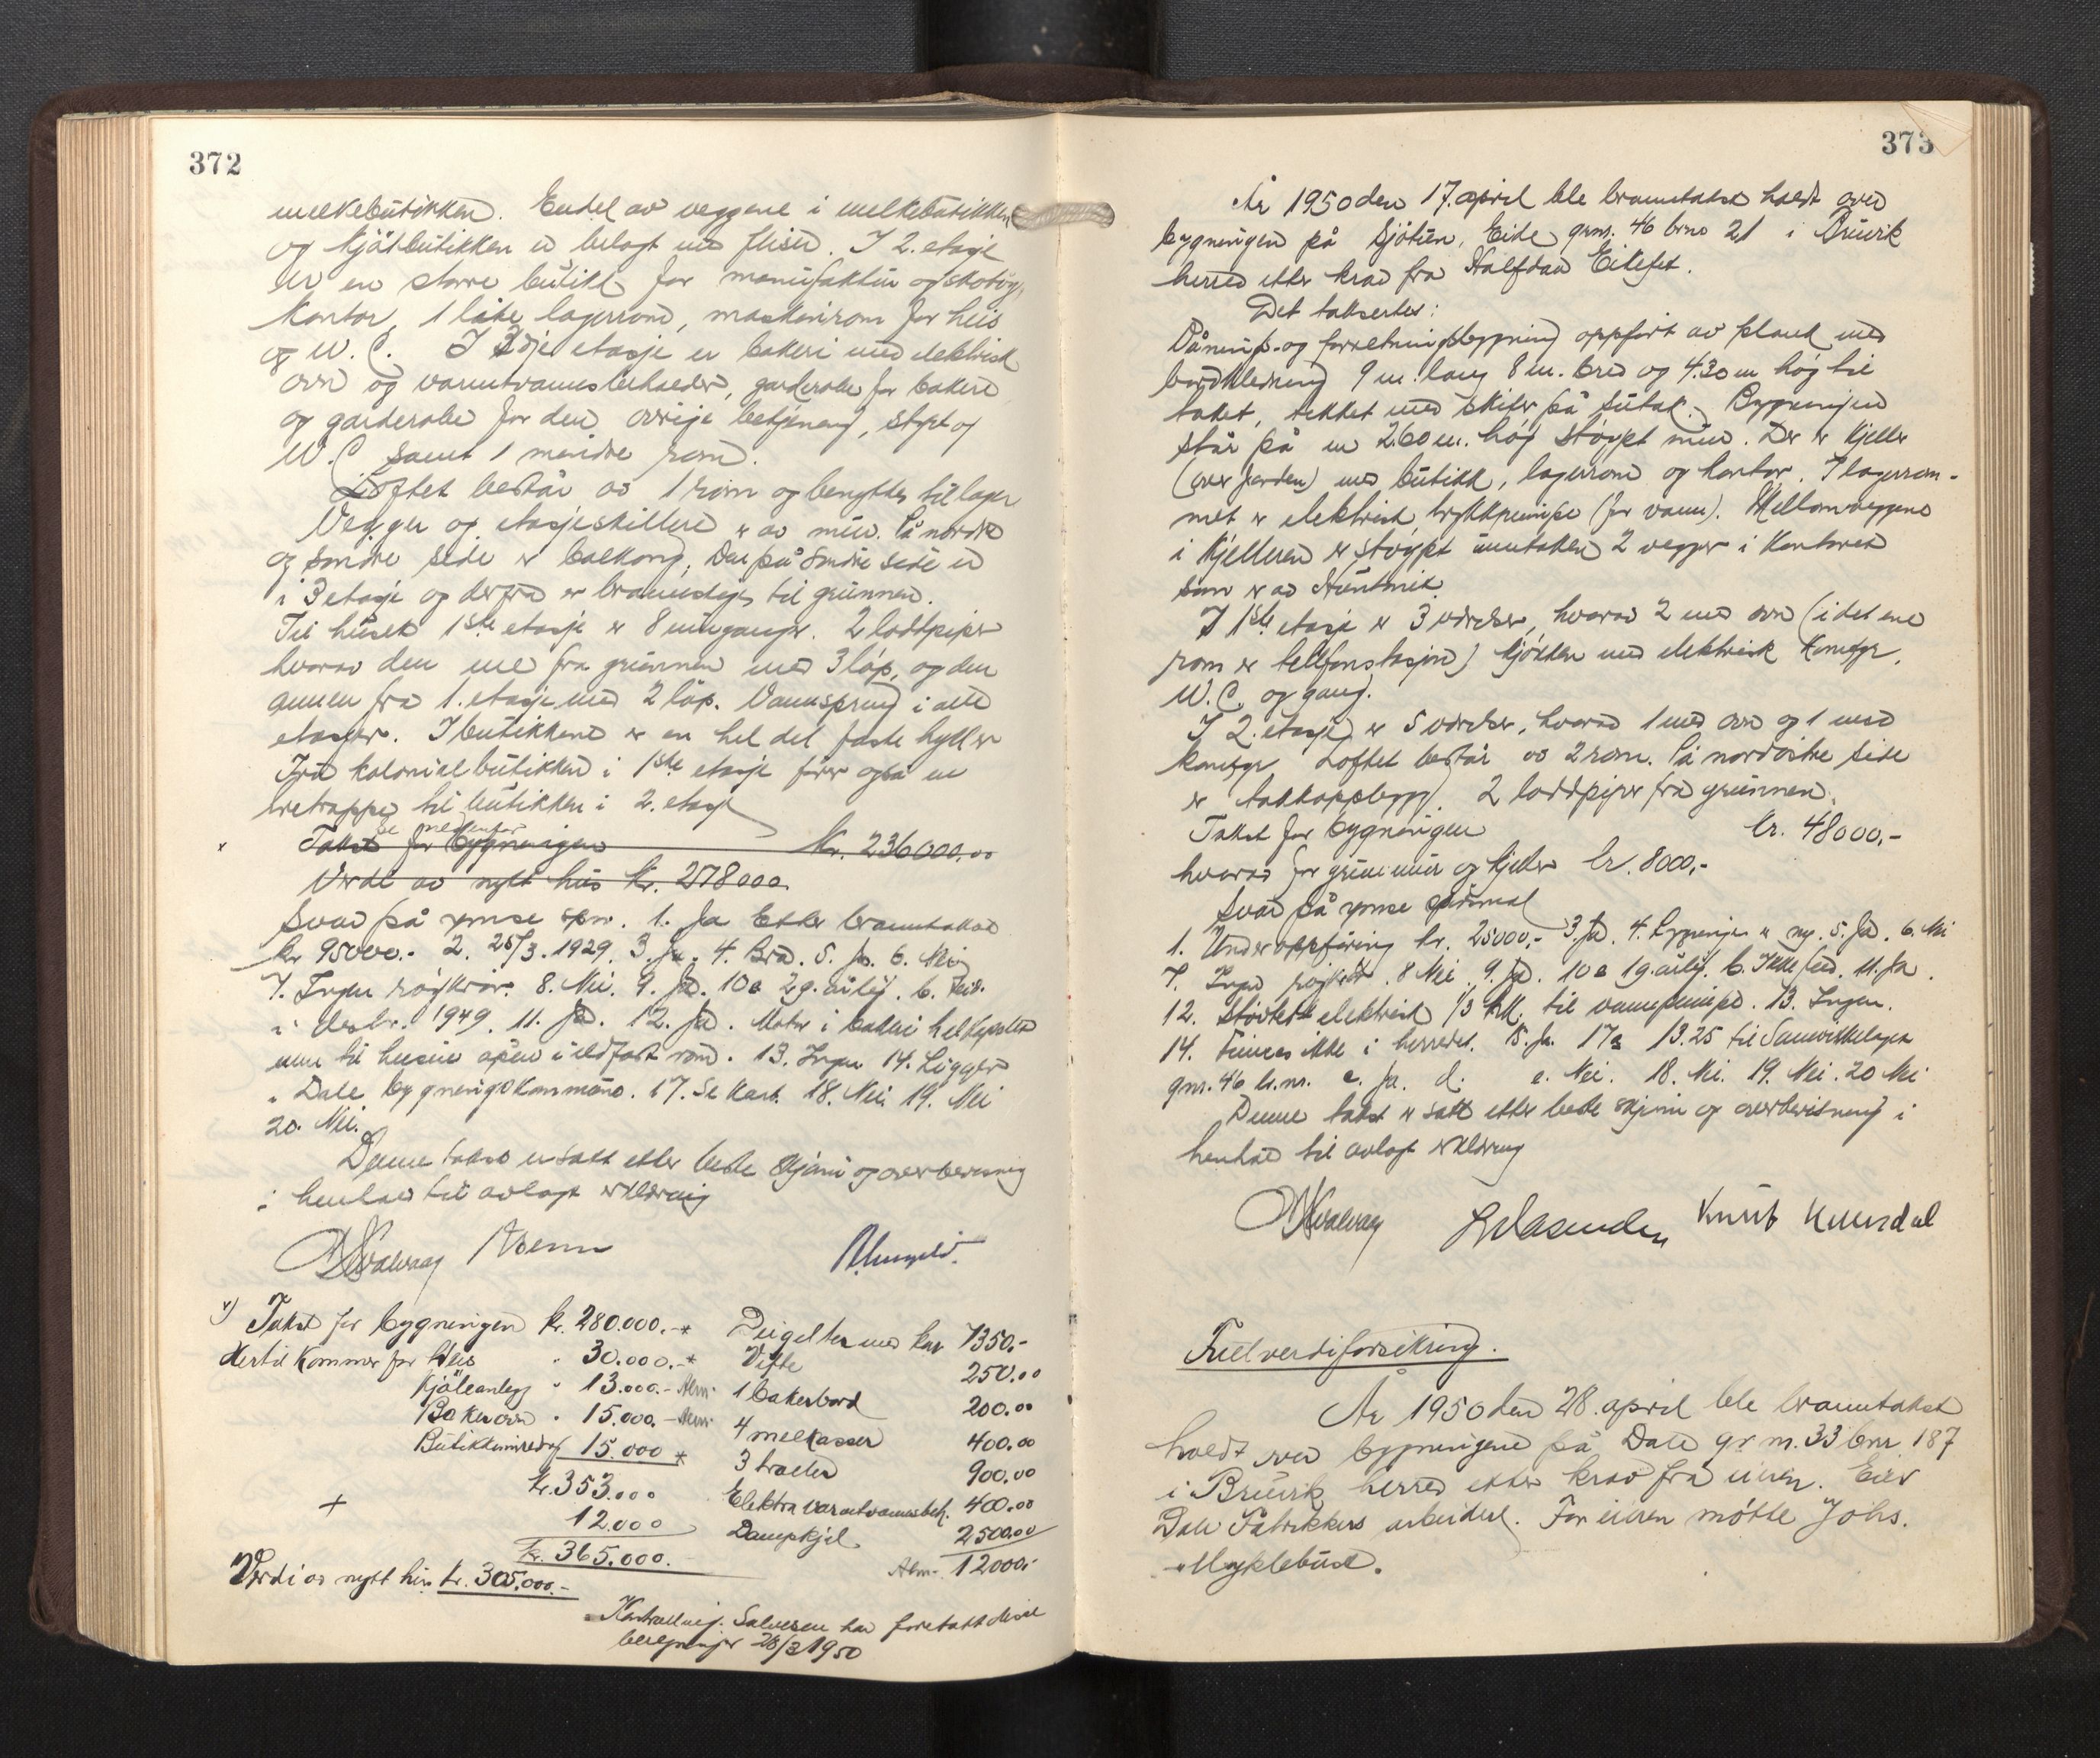 372
melkebutikken. Endel av veggene i melkebutikken
og kjøtbutikken er belagt med fliser. I 2. etasje
er en større butikk for manufaktur og skotøy,
kontor, 1 lite lagerrom, maskinrom for heis
og W.C. I 3dje etasje er bakeri med elektrisk
ovn og varmtvannsbeholder, garderobe for bakere
og garderobe for den øvrige betjening, styrt og
W.C samt 1 mindre rom.
Loftet består av 1 rom og benyttes til lager
Vegger og etasjeskillere er av mur. På nordre
og søndre side er balkong, den på søndre side er
i 3 etasje og derfra er brannstige til grunnen.
Til huset 1ste etasje er 8 innganger. 2 loddpiper
hvorav den ene fra grunnen med 3 løp, og den
annen fra 1. etasje med 2 løp. Vannspring i alle
etasjer. I butikkene er en hel del faste hyller
Fra kolonialbutikken i 1ste etasje fører også en
tretrapp til butikken i 2. etasje
se nedenfor
x Takst for bygningen Kr. 236000.00
Verdi av nytt hus kr. 278000.
Svar på ymse spm. 1. Ja Etter branntakst
kr 95000.- 2. 25/3.1929. 3. Ja. 4. Bra. 5. Ja. 6. Nei
7. Ingen røykrør. 8. Nei. 9. Ja. 10a 2 g. årlig. b. Feid.
i desbr. 1949. 11. Ja. 12. Ja. Motor i bakeri helkapslet
men til heisen åpen i ildfast rom. 13. Ingen 14. Ligger
i Dale bygningskommune. 17. Se kart. 18. Nei. 19. Nei
20. Nei.
Denne takst er satt etter beste skjønn og overbevisning
i henhold til avlagt erklæring
x) Takst for bygningen kr. 280.000.-* Deigelter med kar 1350.-
Hertil kommer for Heis " 30.000.-* Vifte 250.00
Kjøleanlegg " 13.000.- Alm. 1 bakerbord 200.00
Bakerovn " 15.000.- Alm. 4 melkasser 400.00
Butikkinnredn. 15.000 * 3 traller 900.00
kr. 353.000 Elektr. varmtvannsbeh. 400.00
+ 12.000 Dampkjel 2500.00
kr. 365.000.- Alm. 12000.-
Verdi av nytt hus kr. 305.000.-
Kontrollinsp. Salvesen har foretatt disse
beregninger 28/3 1950
373
År 1950 den 17. april ble branntakst holdt over
bygningen på Sjøtun, Eide gnr. 46 brno 21 i Bruvik
herred etter krav fra Halfdan Eikefet.
Det takserte:
Vånings- og forretningsbygning oppført av plank med
bordkledning 9 m. lang 8 m. bred og 4.30 m høg til
taket, tekket med skifer på sutak. Bygningen
står på en 2.60 m. høg støypt mur. Der er kjeller
(over jorden) med butikk, lagerrom og kontor. I lagerrom-
met er elektrisk trykkpumpe (for vann). Mellomveggene
i kjelleren er støypt unntaken 2 vegger i kontoret
som er av Huntonit.
I 1ste etasje er 3 værelser, hvorav 2 med ovn (i det ene
rom er telefonstasjon) kjøkken med elektrisk komfyr,
W.C. og gang.
I 2. etasje er 5 værelser, hvorav 1 med ovn og 1 med
komfyr. Loftet består av 2 rom. På nordøstre side
er takoppbygg. 2 loddpiper fra grunnen.
Takst for bygningen kr. 48000,-
hvorav for grunnmur og kjeller kr. 8000,-
Svar på ymse spørsmål
1. Under oppføring kr. 25000,- 3. Ja. 4. Bygningen er ny. 5. Ja. 6. Nei
7. Ingen røykrør. 8 Nei. 9. Ja. 10a 1 g. årlig. b. Ikke feid. 11. Ja.
12. Støvtett elektrisk 1/3 hk. til vannpumpe. 13. Ingen.
14. Finnes ikke i herredet. 15. Ja. 17a 13.25 til Samvirkelaget
gnr. 46 b.nr. c. Ja. d. e. Nei. 18. Nei. 19. Nei. 20 Nei
Denne takst er satt etter beste skjønn og overbevisning i
henhold til avlagt erklæring
Fullverdiforsikring.
År 1950 den 28. april ble branntakst
holdt over bygningene på Dale gr nr. 33 bnr 187
i Bruvik herred etter krav fra eieren. Eier
Dale Fabrikkers arbeiderl. For eieren møtte Johs.
Myklebust.